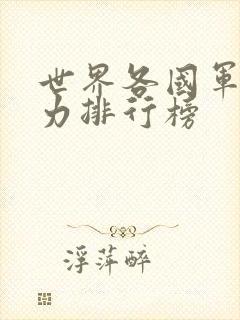 世界各國軍
力排行榜
浮萍醉